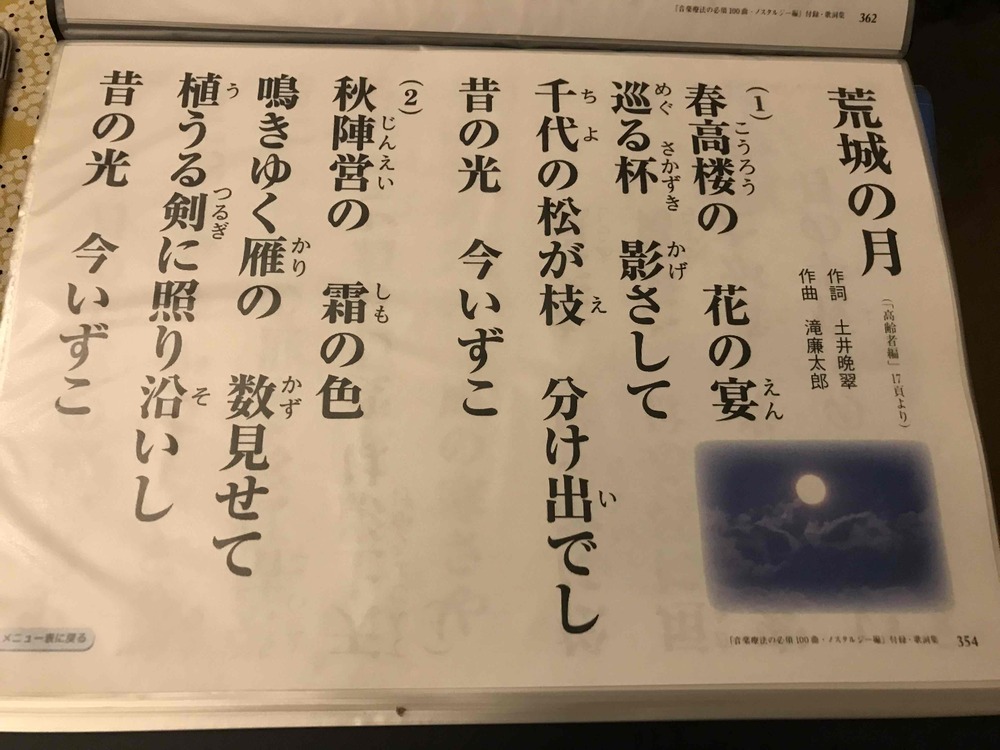 「音楽療法の必須100曲・ノスタルジー編」付録・歌詞集 362
荒城の月
(「高齢者編」17頁より)
作詞 土井晩翠
作曲 滝廉太郎
(1)
春高楼の 花の宴
こうろう えん
巡る杯 影さして
めぐ さかずき かげ
千代の松が枝 分け出でし
ちよ え い
昔の光 今いずこ
(2)
秋陣営の 霜の色
じんえい しも
鳴きゆく雁の 数見せて
かり かず
植うる剣に照り沿いし
う つるぎ そ
昔の光 今いずこ
メニュー表に戻る
「音楽療法の必須100曲・ノスタルジー編」付録・歌詞集 354